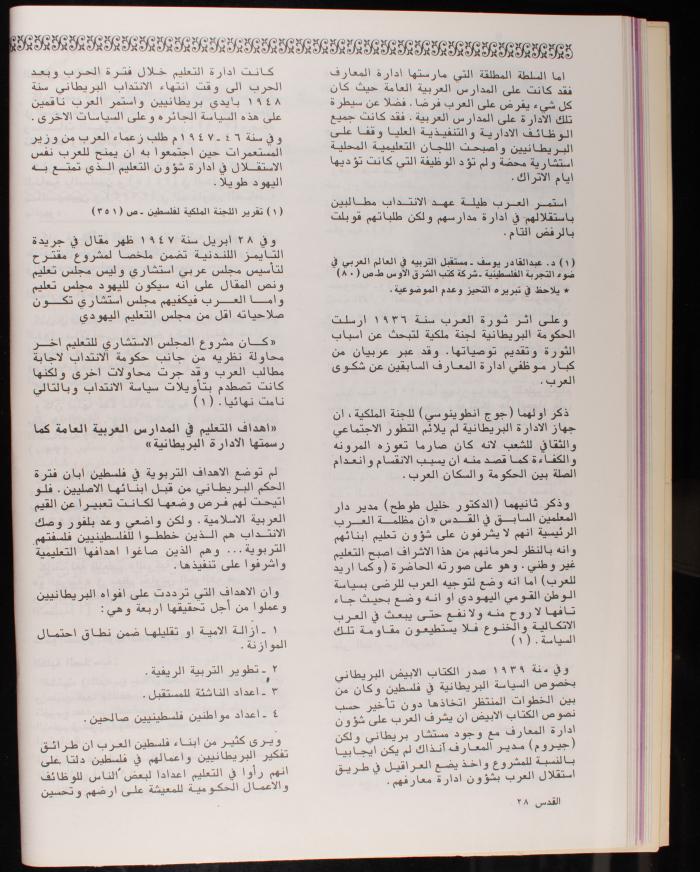 اما السلطة المطلقة التي مارستها ادارة المعارف
فقد كانت على المدارس العربية العامة حيث كان
كل شيء يفرض على العرب فرضا. فضلا عن سيطرة
تلك الادارة على المدارس العربية. فقد كانت جميع
الوظائف الادارية والتنفيذية العليا وقفا على
البريطانيين واصبحت اللجان التعليمية المحلية
استشارية محضة ولم تؤد الوظيفة التي كانت تؤديها
ايام الاتراك.
استمر العرب طيلة عهد الانتداب مطالبين
باستقلالهم في ادارة مدارسهم ولكن طلباتهم قوبلت
بالرفض التام.
(١) د. عبدالقادر يوسف ـ مستقبل التربيه في العالم العربي في
ضوء التجربة الفلسطينية ـ شركة كتب الشرق الاوس طـ ص (٨٠)
* يلاحظ في تبريره التحيز وعدم الموضوعية.
وعلى اثر ثورة العرب سنة ١٩٣٦ ارسلت
الحكومة البريطانية لجنة ملكية لتبحث عن اسباب
الثورة وتقديم توصياتها. وقد عبر عربيان من
كبار موظفي ادارة المعارف السابقين عن شكوى
العرب.
ذكر اولهما (جوج انطوينوسي) للجنة الملكية، ان
جهاز الادارة البريطانية لم يلائم التطور الاجتماعي
والثقافي للشعب لانه كان صارما تعوزه المرونه
والكفاءة كما قصد منه ان يسبب الانقسام وانعدام
الصلة بين الحكومة والسكان العرب.
وذكر ثانيهما (الدكتور خليل طوطح) مدير دار
المعلمين السابق في القدس «ان مظلمة العرب
الرئيسية انهم لا يشرفون على شؤون تعليم ابنائهم
وانه بالنظر لحرمانهم من هذا الاشراف اصبح التعليم
غير وطني. وهو على صورته الحاضرة (وكما اريد
للعرب) اما انه وضع لتوجيه العرب للرضى بسياسة
الوطن القومي اليهودي او انه وضع بحيث جاء
تافها لا روح منه ولا نفع حتى يبعث في العرب
الاتكالية والخنوع فلا يستطيعون مقاومة تلك
السياسة. (١)
وفي سنة ١٩٣٩ صدر الكتاب الابيض البريطاني
بخصوص السياسة البريطانية في فلسطين وكان من
بين الخطوات المنتظر اتخاذها دون تأخير حسب
نصوص الكتاب الابيض ان يشرف العرب على شؤون
ادارة المعارف مع وجود مستشار بريطاني ولكن
(جيروم) مدير المعارف آنذاك لم يكن ايجابيا
بالنسبة للمشروع واخذ يضع العراقيل في طريق
استقلال العرب بشؤون ادارة معارفهم.
القدس ٢٨
كانت ادارة التعليم خلال فترة الحرب وبعد
الحرب الى وقت انتهاء الانتداب البريطاني سنة
١٩٤٨ بايدي بريطانيين واستمر العرب ناقمين
على هذه السياسة الجائره وعلى السياسات الاخرى.
وفي سنة ٤٦ ـ ١٩٤٧م طلب زعماء العرب من وزير
المستعمرات حين اجتمعوا به ان يمنح للعرب نفس
الاستقلال في ادارة شؤون التعليم الذي تمتع به
اليهود طويلا.
(١) تقرير اللجنة الملكية لفلسطين ـ ص (٣٥١)
وفي ٢٨ ابريل سنة ١٩٤٧ ظهر مقال في جريدة
التايمز اللندنية تضمن ملخصا لمشروع مقترح
لتأسيس مجلس عربي استشاري وليس مجلس تعليم
ونص المقال على انه سيكون لليهود مجلس تعليم
واما العرب فيكفيهم مجلس استشاري تكون
صلاحياته اقل من مجلس التعليم اليهودي
«كان مشروع المجلس الاستشاري للتعليم اخر
محاولة نظريه من جانب حكومة الانتداب لاجابة
مطالب العرب وقد جرت محاولات اخرى ولكنها
كانت تصطدم بتأويلات سياسة الانتداب وبالتالي
نامت نهائيا. (١)
«اهداف التعليم في المدارس العربية العامة كما
رسمتها الادارة البريطانية»
لم توضع الاهداف التربوية في فلسطين ابان فترة
الحكم البريطاني من قبل ابنائها الاصليين. فلو
اتيحت لهم فرص وضعها لكانت تعبيرا عن القيم
العربية الاسلامية. ولكن واضعي وعد بلفور وصك
الانتداب هم الذين خططوا للفلسطينيين فلسفتهم
التربوية... وهم الذين صاغوا اهدافها التعليمية
واشرفوا على تنفيذها.
وان الاهداف التي ترددت على افواه البريطانيين
وعملوا من أجل تحقيقها اربعة وهي:
١ ـ ازالة الامية او تقليلها ضمن نطاق احتمال
الموازنة.
٢ ـ تطوير التربية الريفية.
٣ ـ اعداد الناشئة للمستقبل.
٤ ـ اعداد مواطنين فلسطينيين صالحين.
ويرى كثير من ابناء فلسطين العرب ان طرائق
تفكير البريطانيين واعمالهم في فلسطين دلتا على
انهم رأوا في التعليم اعدادا لبعض الناس للوظائف
والاعمال الحكومية للمعيشة على ارضهم وتحسين